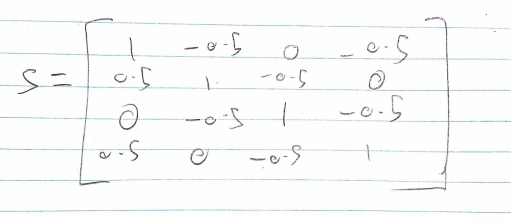 1 -0.5 0 -0.5
S = 0.5 1 -0.5 0
0 -0.5 1 -0.5
0.5 0 -0.5 1